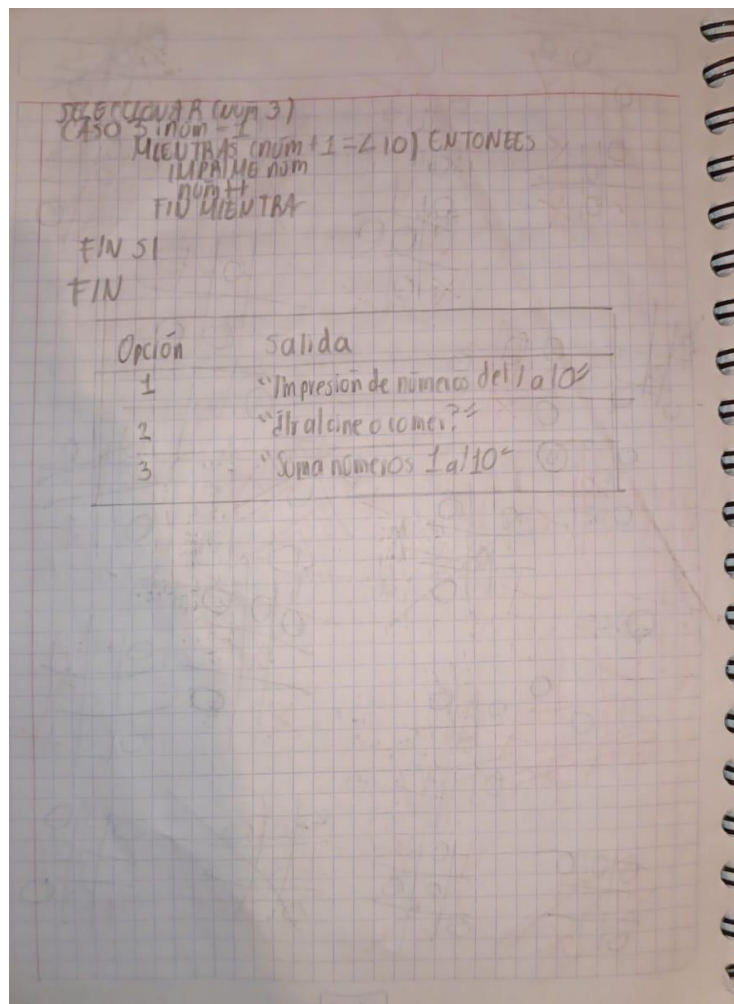 SELECCIONAR (num 3)
CASO 3 : num = 1
MIENTRAS (num + 1 = < 10) ENTONCES
IMPRIME num
num ++
FIN MIENTRA
FIN SI
FIN
Opción Salida
1 "Impresión de números del 1 a 10"
2 "Ir al cine o comer?"
3 "Suma números 1 al 10"